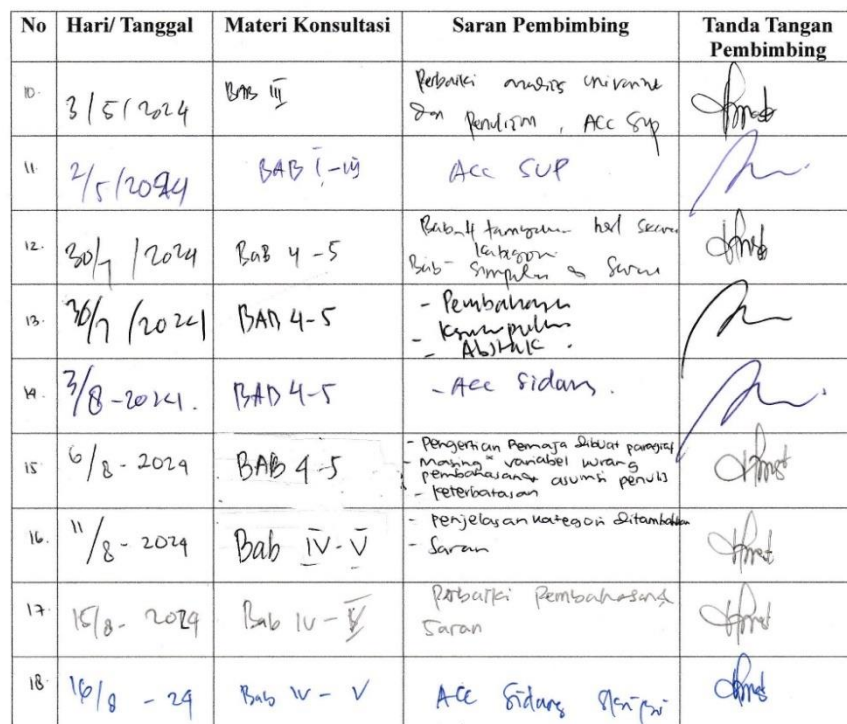 No Hari/ Tanggal Materi Konsultasi Saran Pembimbing Tanda Tangan Pembimbing
10. 3/5/2024 BAB III Perbaiki analisis univariat
dan penulisan, ACC SUP
11. 2/5/2024 BAB I-III ACC SUP
12. 30/7/2024 BaB 4-5 Bab 4 hasil secara
kategori
Bab simpulan & Saran
13. 30/7/2024 BAB 4-5 - Pembahasan
- Kesimpulan
- Abstrak.
14. 3/8-2024. BAB 4-5 - Acc Sidang.
15 6/8-2024 BAB 4-5 - Pengertian Remaja dibuat paragraf
- Masing" variabel kurang
pembahasan+ asumsi penulis
- keterbatasan
16. 11/8-2024 Bab IV-V - penjelasan kategori ditambahkan
- Saran
17. 15/8-2024 Bab IV-V Perbaiki Pembahasan &
Saran
18. 16/8-24 Bab IV-V ACC Sidang Skripsi